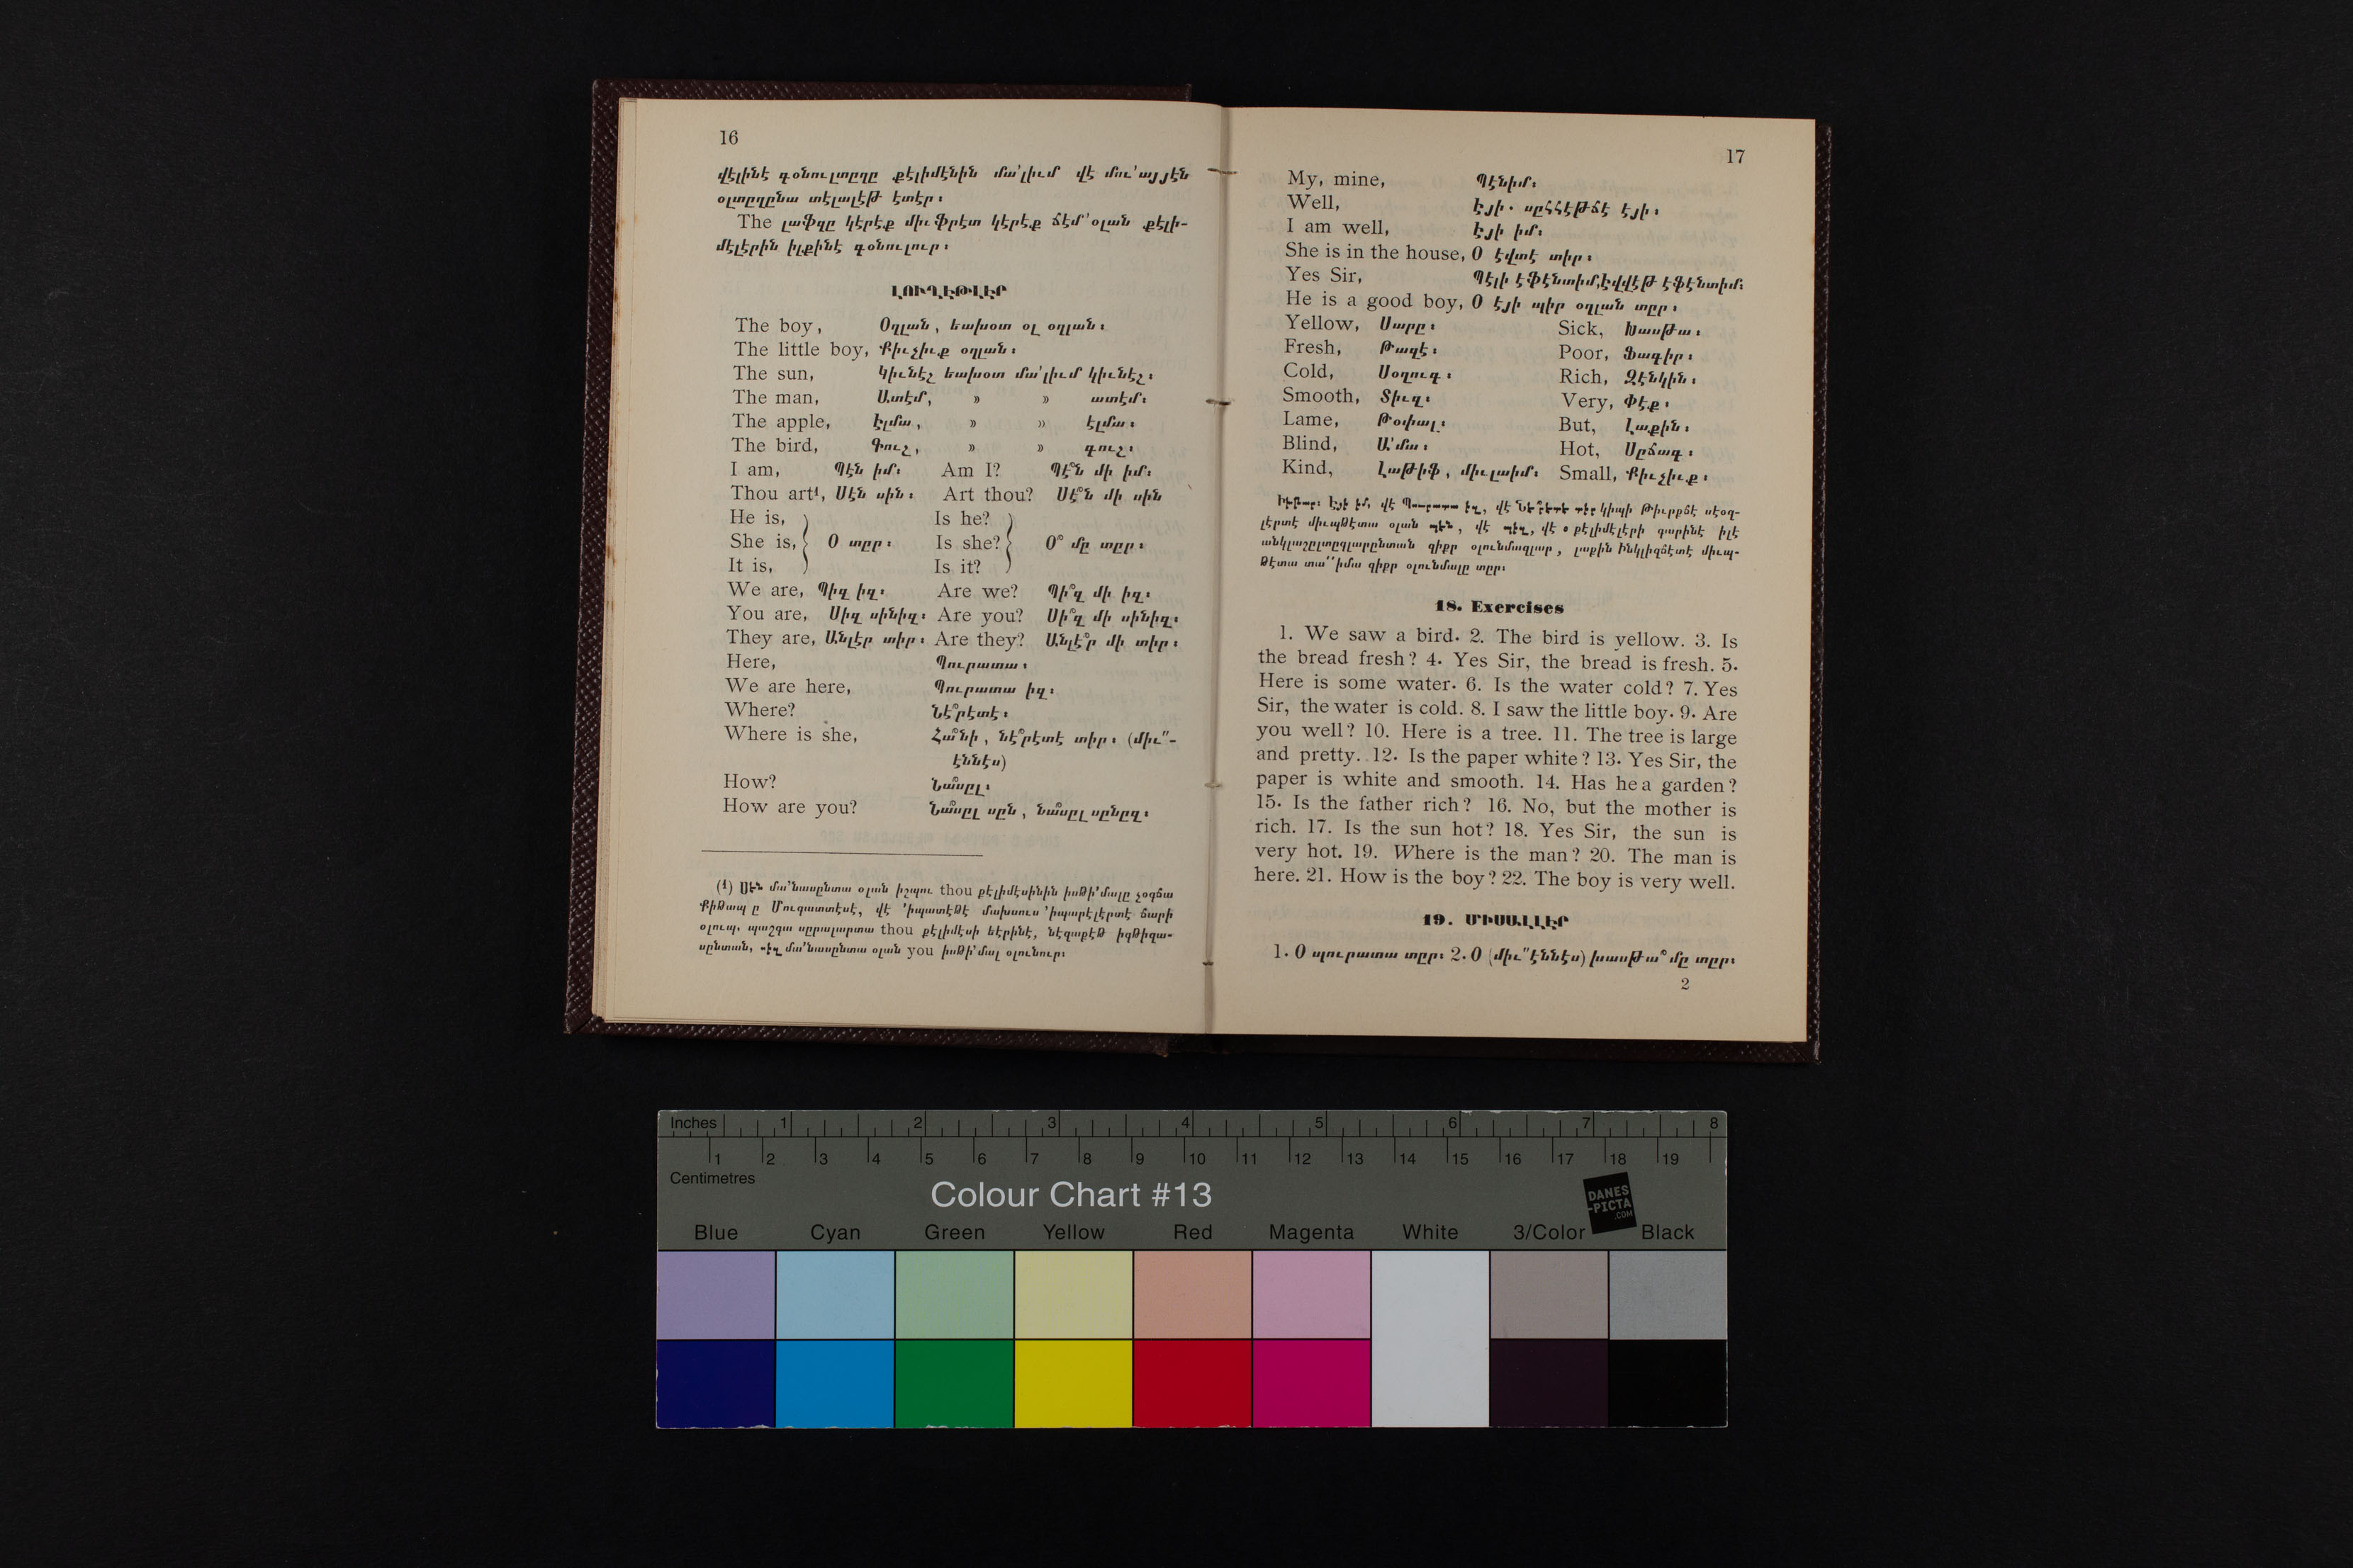 16
վէլինէ գօնուլտըղը քէլիմէնին մա՛լիւմ վէ մու՛այյէն
օլտըղընա տէլալէթ էտէր։
The լաֆզը կէրէք միւֆրէտ կէրէք ճէմ՛ օլան քէլի-
մէլէրին իլքինէ գօնուլուր։
ԼՈՒՂԷԹԼԷՐ
The boy, Օղլան, եախօտ օլ օղլան։
The little boy, Քիւչիւք օղլան։
The sun, Կիւնէշ եախօտ մա՛լիւմ կիւնէշ։
The man, Ատէմ, » » ատէմ։
The apple, Էլմա, » » էլմա։
The bird, Գուշ, » » գուշ։
I am, Պէն իմ։ Am I? Պէ՞ն մի իմ։
Thou art¹, Սէն սին։ Art thou? Սէ՞ն մի սին
He is, Is he?
She is, Օ տըր։ Is she? Օ՞ մը տըր։
It is, Is it?
We are, Պիզ իզ։ Are we? Պի՞զ մի իզ։
You are, Սիզ սինիզ։ Are you? Սի՞զ մի սինիզ։
They are, Անլէր տիր։ Are they? Անլէ՞ր մի տիր։
Here, Պուրատա։
We are here, Պուրատա իզ։
Where? Նէ՞րէտէ։
Where is she, Հա՞նի, նէ՞րէտէ տիր։ (միւ՛՛-
էննէս)
How? Նա՞սըլ։
How are you? Նա՞սըլ սըն, նա՞սըլ սընըզ։
(¹) Սէն մա՛նասընտա օլան իշպու thou քէլիմէսինին իսթի՛մալը չօգճա
Քիթապ ը Մուգատտէսէ, վէ ՛իպատէթէ մախսուս ՛իպարէլէրտէ ճարի
օլուպ, պաշգա սըրալարտա thou քէլիմէսի եէրինէ, նէզաքէթ իգթիզա-
սընտան, սիզ մա՛նասընտա օլան you իսթի՛մալ օլունուր։
17
My, mine, Պէնիմ։
Well, Էյի. սըհհէթճէ էյի։
I am well, Էյի իմ։
She is in the house, Օ էվտէ տիր։
Yes Sir, Պէլի էֆէնտիմ, էվվէթ էֆէնտիմ։
He is a good boy, Օ էյի պիր օղլան տըր։
Yellow, Սարը։ Sick, Խասթա։
Fresh, Թազէ։ Poor, Ֆագիր։
Cold, Սօղուգ։ Rich, Զէնկին։
Smooth, Տիւզ։ Very, Փէք։
Lame, Թօփալ։ But, Լաքին։
Blind, Ա՛մա։ Hot, Սըճագ։
Kind, Լաթիֆ, միւլաիմ։ Small, Քիւչիւք։
Էյի իմ, վէ Պուրատա իզ, վէ Նէ՞րէտէ տիր կիպի Թիւրքճէ սէօզ-
լէրտէ միւպթէտա օլան պէն, վէ պիզ, վէ օ քէլիմէլէրի գարինէ իլէ
անկլաշըլտըգլարընտան զիքր օլունմազլար, լաքին Ինկլիզճէտէ միւպ-
թէտա տա՛՛իմա զիքր օլունմալը տըր։
18. Exercises
1. We saw a bird. 2. The bird is yellow. 3. Is
the bread fresh? 4. Yes Sir, the bread is fresh. 5.
Here is some water. 6. Is the water cold? 7. Yes
Sir, the water is cold. 8. I saw the little boy. 9. Are
you well? 10. Here is a tree. 11. The tree is large
and pretty. 12. Is the paper white? 13. Yes Sir, the
paper is white and smooth. 14. Has he a garden?
15. Is the father rich? 16. No, but the mother is
rich. 17. Is the sun hot? 18. Yes Sir, the sun is
very hot. 19. Where is the man? 20. The man is
here. 21. How is the boy? 22. The boy is very well.
19. ՄԻՍԱԼԼԷՐ
1. Օ պուրատա տըր։ 2. Օ (միւ՛՛էննէս) խասթա՞ մը տըր։
2
Inches 1 2 3 4 5 6 7 8
1 2 3 4 5 6 7 8 9 10 11 12 13 14 15 16 17 18 19
Centimetres
Colour Chart #13
DANES
-PICTA
.COM
Blue Cyan Green Yellow Red Magenta White 3/Color Black